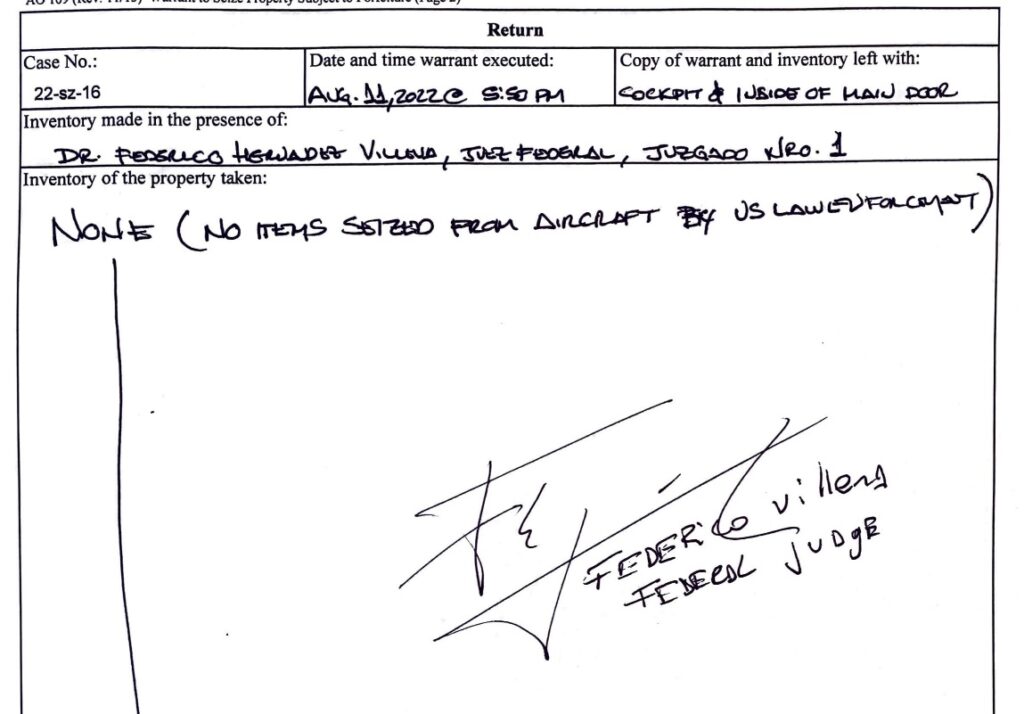 AO 109 (Rev. 11/13) Warrant to Seize Property Subject to Forfeiture (Page 2)
Return
Case No.:
22-sz-16
Date and time warrant executed:
AUG. 11, 2022 @ 5:50 PM
Copy of warrant and inventory left with:
COCKPIT & INSIDE OF MAIN DOOR
Inventory made in the presence of:
DR. FEDERICO HERNADEZ VILLENA, JUEZ FEDERAL, JUZGADO NRO. 1
Inventory of the property taken:
NONE (NO ITEMS SEIZED FROM AIRCRAFT BY US LAW ENFORCMENT)
FEDERICO Villena
FEDERAL JUDGE